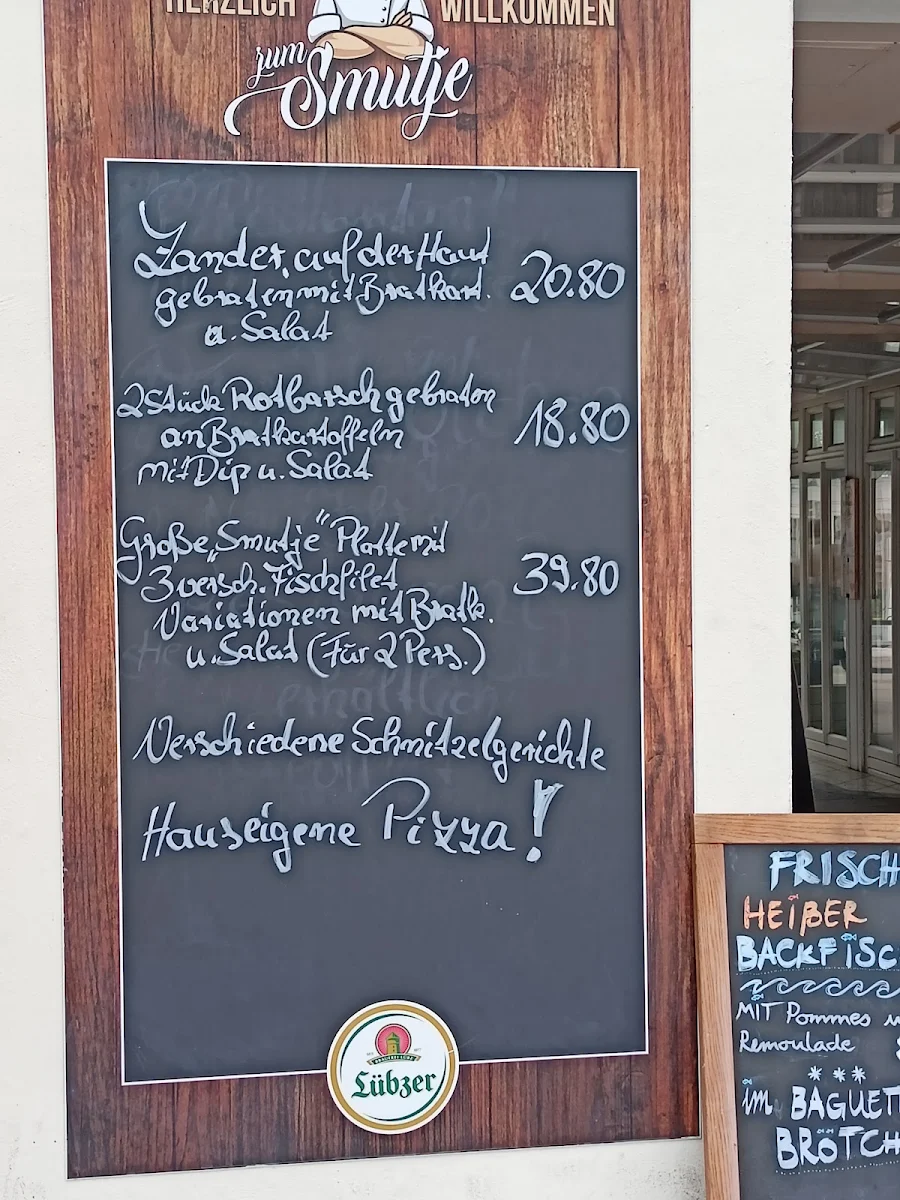 HERZLICH WILLKOMMEN
zum
Smutje
Zander, auf der Haut
gebraten mit Bratkart. 20.80
u. Salat
2 Stück Rotbarsch gebraten
an Bratkartoffeln 18.80
mit Dip u. Salat
Große „Smutje" Platte mit
3 versch. Fischfilet 39.80
Variationen mit Bratk.
u. Salat (Für 2 Pers.)
Verschiedene Schnitzelgerichte
Hauseigene Pizza!
Lübzer
FRISCH
HEIßER
BACKFISC
MIT Pommes
Remoulade
im BAGUET
BRÖTCH